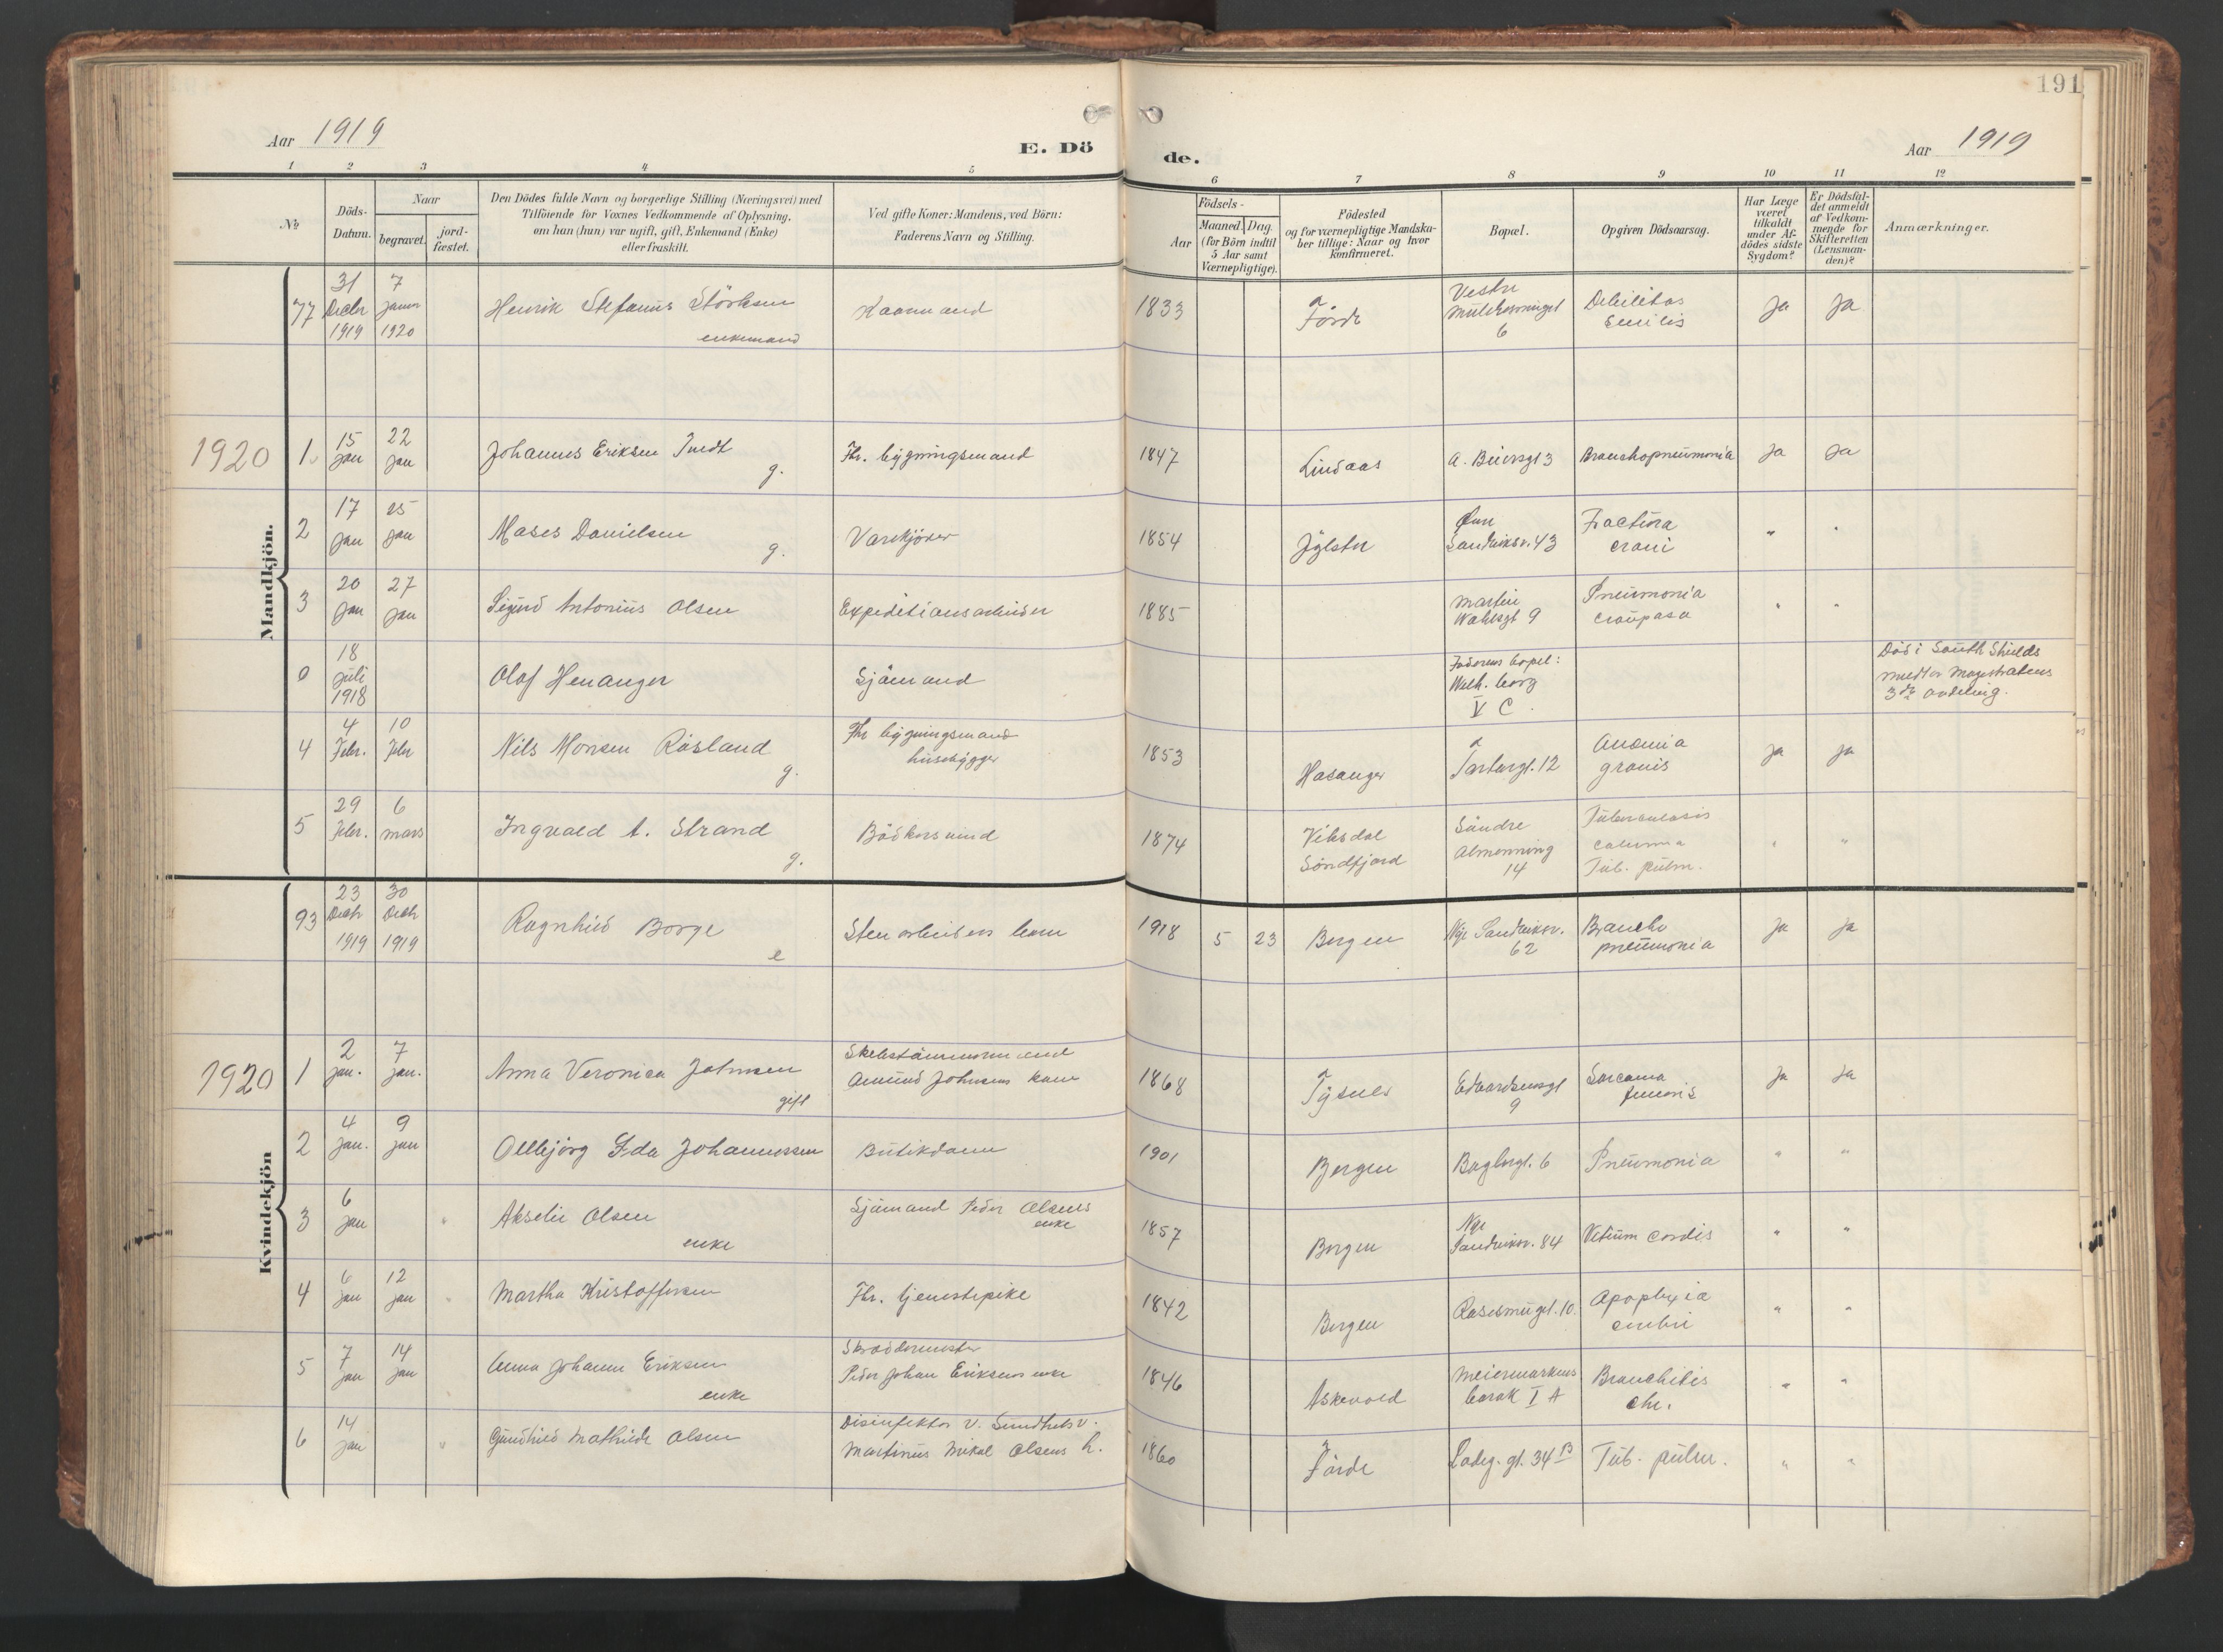 191
Aar 1919
E. Dö
de.
Aar 1919
1 2 3 4 5
6 7 8 9 10 11 12
№
Döds-
Datum.
Naar
begravet.
jord-
fæstet.
Den Dödes fulde Navn og borgerlige Stilling (Næringsvei) med
Tilföiende for Voxnes Vedkommende af Oplysning,
om han (hun) var ugift, gift, Enkemand (Enke)
eller fraskilt.
Ved gifte Koner: Mandens, ved Börn:
Faderens Navn og Stilling.
Födsels-
Aar
Maaned. Dag.
(for Börn indtil
5 Aar samt
Værnepligtige).
Födested
og for værnepligtige Mandska-
ber tillige: Naar og hvor
konfirmeret.
Bopæl.
Opgiven Dödsaarsag.
Har Læge
været
tilkaldt
under Af-
dödes sidste
Sygdom?
Er Dödsfal-
det anmeldt
af Vedkom-
mende for
Skifteretten
(Lensman-
den)?
Anmærkninger.
Mandkjön.
77 31 Decbr 1919 7 Januar 1920 Henrik Stefanus Störksen enkemand 1833 Förde Vestre Muldermuget 6 Debilitas senilis Ja Ja
1920
1 15 Jan 22 Jan Johannes Eriksen Tvedt g. Fhr. bygningsmand 1847 Lindaas A. Beiersgt 3 Bronchopneumonia Ja Ja
2 17 Jan 25 Jan Moses Danielsen g. Varekjörer 1854 Jölster Sandviksv. 43 Fractura cranii " "
3 20 Jan 27 Jan Sigurd Antonius Olsen Expeditionsarbeider 1885 Martin Wahlsgt 9 Pneumonia crouposa " "
0 18 Juli 1918 Olaf Henanger Sjömand Faderens bopel: Welh. borg V C. Död i South Shields meldt av Magistratens 3die avdeling.
4 4 Febr. 10 Febr Nils Monsen Røsland g. Fhr bygningsmand husebygger 1853 Hosanger Tartargt. 12 Anæmia gravis Ja Ja
5 29 Febr. 6 mars Ingvald A. Strand g. Bödkersvend 1874 Viksdal Söndfjord Söndre Almenning 14 Tuberculosis columna Tub. pulm. " "
Kvindekjön
93 23 Decbr 1919 30 Decbr 1919 Ragnhild Borge e Stenarbeiders barn 1918 5 23 Bergen Nye Sandviksv. 62 Broncho pneumonia Ja Ja
1920
1 2 Jan. 7 Jan. Anna Veronica Johnsen gift Skibstömmermand Amund Johnsens kone 1868 Tysnes Edvardsensgt 9 Sarcoma femoris Ja Ja
2 4 Jan. 9 Jan Ollbjörg Ida Johannessen Butikdame 1901 Bergen Baglergt. 6 Pneumonia " "
3 6 Jan " Akselie Olsen enke Sjömand Peder Olsens enke 1857 Bergen Nye Sandviksv. 84 Vitium cordis " "
4 6 Jan 12 Jan " Martha Kristoffersen Fhr. tjenestepike 1842 Bergen Rosesmugt. 10. Apoplexia cerebri " "
5 7 Jan 14 Jan Anna Johanne Eriksen enke Skræddermester Peder Johan Eriksens enke 1846 Askevold Meiermarkens barak I A Bronchitis chr. " "
6 14 Jan " Gundhild Mathilde Olsen Disinfektor v. Sundhetsv. Martinus Mikal Olsens h. 1860 Förde Ladeg. gt. 34 B Tub. pulm. " "